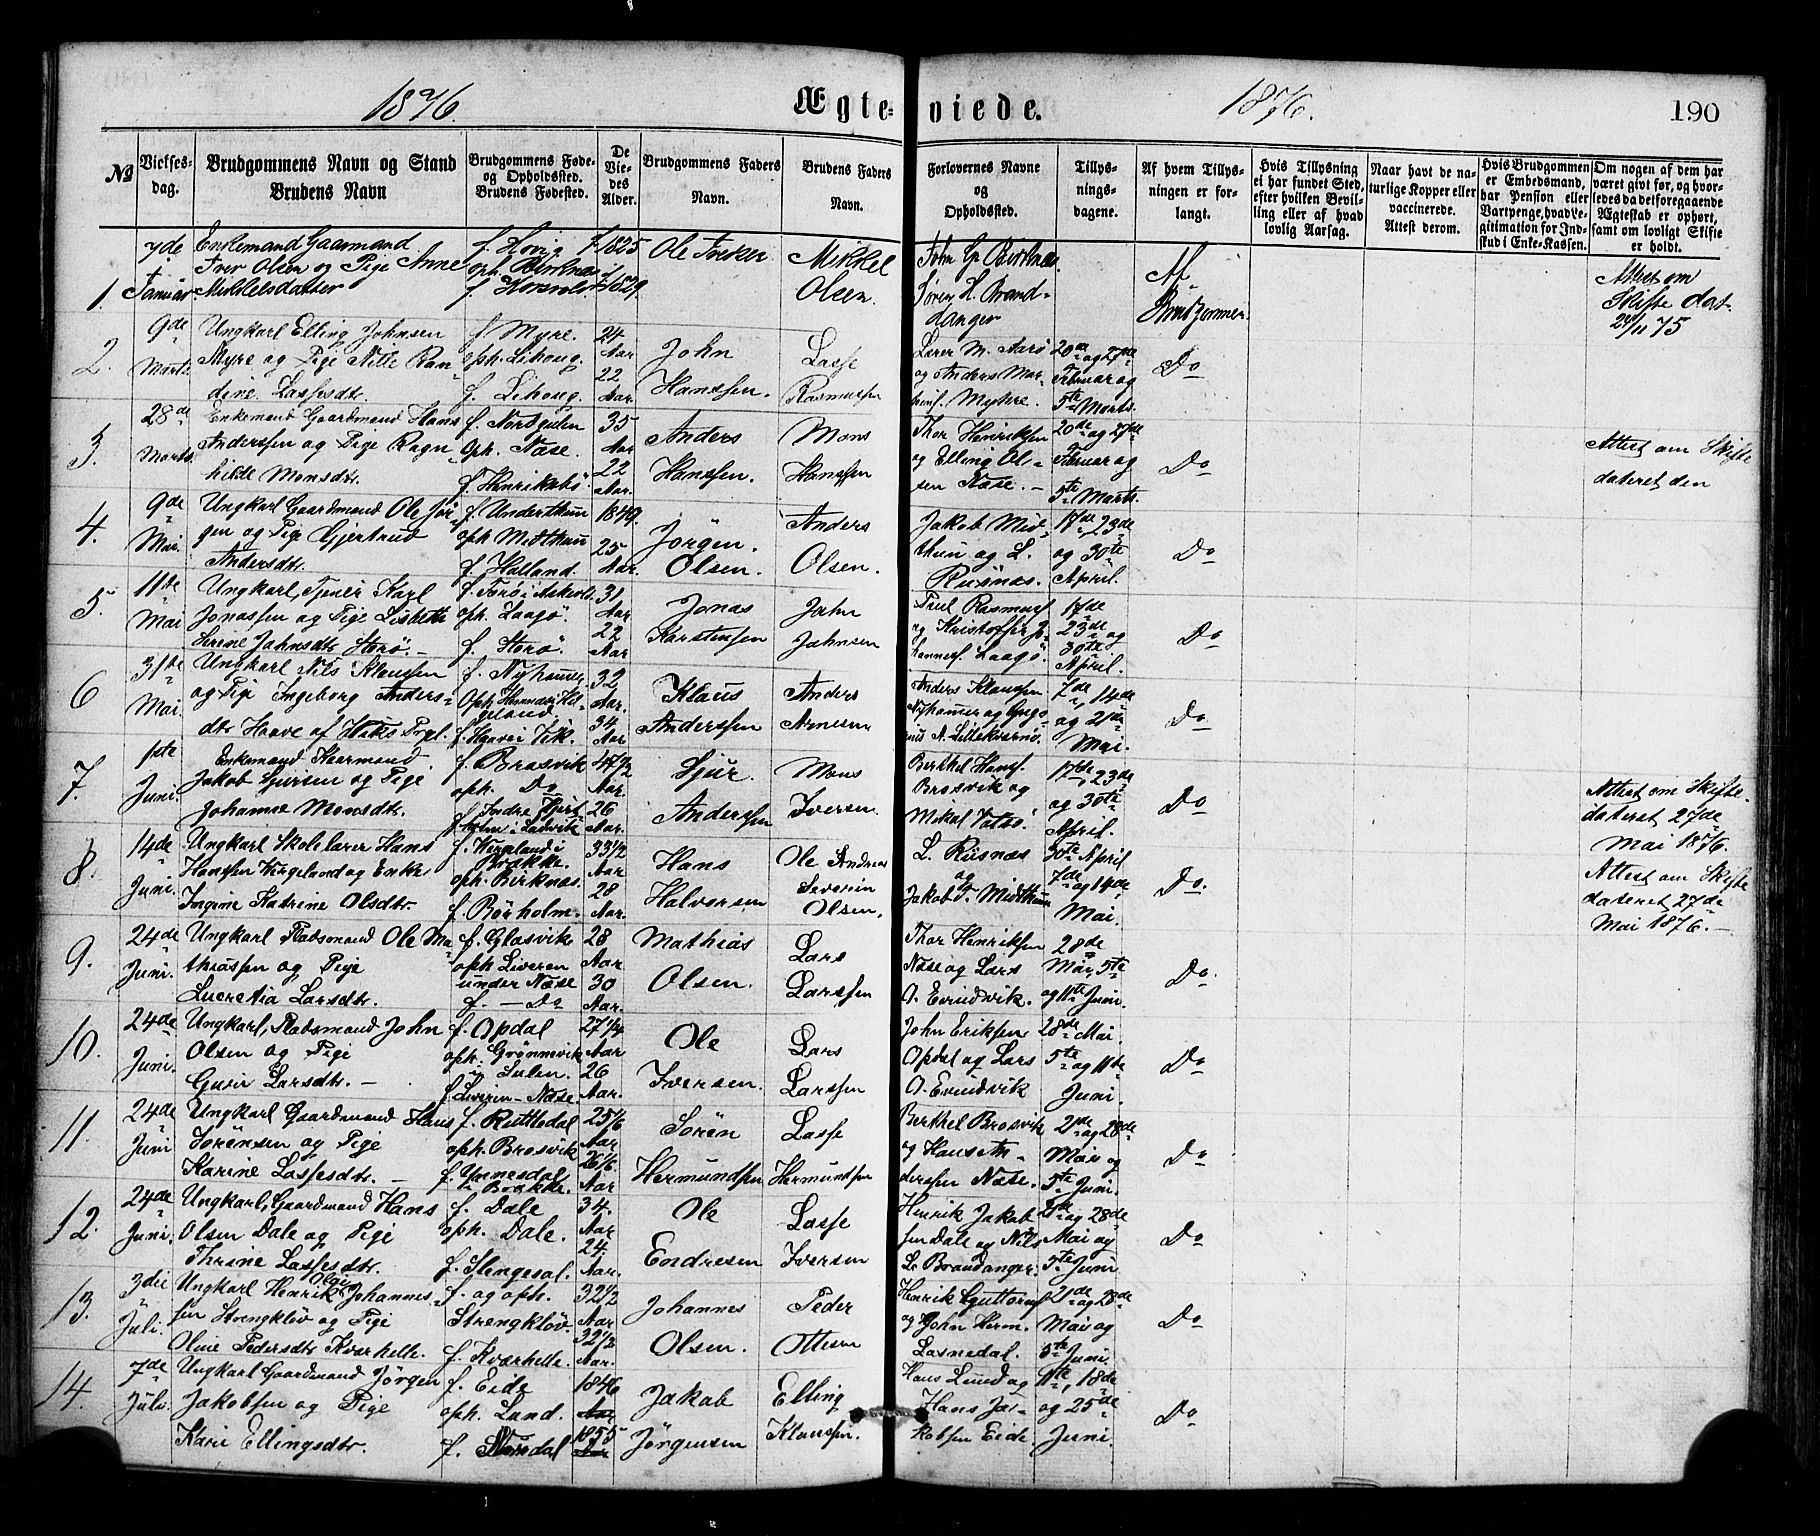 1876.
Ægte-
viede.
1876.
190
№
Vielses-
dag.
Brudgommens Navn og Stand
Brudens Navn
Brudgommens Føde-
og Opholdssted.
Brudens Fødested.
De
Vie-
des
Alder.
Brudgommens Faders
Navn.
Brudens Faders
Navn.
Forlovernes Navne
og
Opholdssted.
Tillys-
nings-
dagene.
Af hvem Tillys-
ningen er for-
langt.
Hvis Tillysning
ei har fundet Sted,
efter hvilken Bevil-
ling eller af hvad
lovlig Aarsag.
Naar havt de na-
turlige Kopper eller
vaccinerede.
Attest derom.
Hvis Brudgommen
er Embedsmand,
har Pension eller
Vartpenge, hvad Le-
gitimation for Ind-
skud i Enke-Kassen.
Om nogen af dem har
været givt før, og hvor-
ledes da det foregaaende
Ægteskab er ophørt,
samt om lovligt Skifte
er holdt.
1.
7de
Januar
Enkemand Gaarmand
Iver Olsen og Pige Anne
Mikkelsdatter
f. Hovig
oph. Birknæs
1825
1829
Mikkel
Olsen.
John Gr. Birknæs.
Søren H. Brand-
anger
Af
Attest om
Skifte dat.
24/11 75
2.
9de
Marts
Ungkarl Elling Johnsen
Myre og Pige Nille Ran-
dine Lassesdtr.
f. Myre.
oph. Lihoug.
f. Lihoug.
24
Aar
22
Aar.
John
Hanssen.
Lasse
Rasmussen
Lærer M. Aarø
og Anders Mar-
Mykre.
20de og 27de
Februar og
5te Marts.
Do
3.
28de
Marts.
Enkemand Gaardmand Hans
Anderssen og Pige Ragn-
hilde Monsdtr.
f. Nordgulen
Oph. Næse.
f. Henriksbø
35
Aar
22
Aar.
Anders
Hanssen.
Mons
Hanssen
Thor Henriksen
og Elling Ol-
sen Næse. -
20de og 27de
Februar og
5te Marts.
Do
Attest om Skifte
dateret den
4.
9de
Mai.
Ungkarl Gaardmand Ole Jør-
gen og Pige Gjertrud
Andersdtr.
f. Underthun
oph Midthun
f. Halland.
1849.
25
Aar.
Jörgen.
Olsen.
Anders
Olsen.
Jakob Mid-
thun og L.
Risnæs.
17de, 23de
og 30te
April.
Do
5.
11te
Mai
Ungkarl, Tjener Karl
Jonassen og Pige Lisbeth
Serine Jahnsdtr Storø. -
f. Forøi Askvold
oph. Laagø.
f. Storø.
31
Aar
22
Aar
Jonas
Karstensen
Jahn
Jahnsen
Poul Rasmuss
og Kristoffer Jo-
hanness. Laagø.
17de
23de og
30te
April.
Do
6
31te
Mai.
Ungkarl Nils Klaussen
og Pige Ingeborg Anders-
dtr Haave af Viks Prgl.
f. Nyhamer
f. Haave i Vik.
32
Aar.
34
Aar
Klaus
Anderssen
Anders
Arnesen
Anders Klaussen
Nyhamer og Grego-
rius A. Lillekværnø.
7de, 14de
og 21de
Mai.
Do
7.
1ste
Juni.
Enkemand Kaarmand
Jakob Sjursen og Pige
Johanne Monsdtr.
f. Brosvik
oph. Do
47 1/2
Aar.
26
Aar.
Sjur
Anderssen
Mons
Iversen
Berthel Hanss.
Brosvik og
Mikal Vatsø.
17de, 23de
og 30te
April.
Do
Attest om Skifte.
dateret 27de
Mai 1876.
8.
14de
Juni.
Ungkarl Skolelærer Hans
Hanssen Vergeland og Enke
Ingine Katrine Olsdtr.
f. Vergeland i
Brække.
oph. Birknæs.
f. Börholm.
33 1/2
Aar
28
Aar.
Hans
Halvorsen
Ole Andreas
Severin
Olsen.
L. Risnæs
og
Jakob T. Midthun
30te April
7de og 14de
Mai.
Do.
Attest om Skifte
dateret 27de
Mai 1876. -
9.
24de
Juni.
Ungkarl Pladsmand Ole Ma-
thiassen og Pige
Lucretia Larsdtr.
f. Glasvik
oph. Liveren
under Næse
f. - Do
28
Aar
30
Aar.
Mathias
Olsen.
Lars
Larssen
Thor Henriksen
Næse og Lars
O. Evindvik.
28de
Mai, 5te
og 11te Juni.
Do.
10.
24de
Juni.
Ungkarl, Pladsmand John
Olsen og Pige
Guri Larsdtr. -
f. Opdal
oph. Grönnevik
i Sulen.
f. Liveren - Næse.
27 1/4
Aar
26
Aar.
Ole
Iversen.
Lars
Larssen
John Eriksen
Opdal og Lars
O. Evindvik
28de Mai.
5te og 11te
Juni.
Do
11.
24de
Juni
Ungkarl Gaardmand Hans
Sörensen og Pige
Karine Lassesdtr. -
f. Rutledal
oph. Brosvik
f. Ynnesdal
i Brække.
25 1/6
Aar
26 1/6.
Aar
Sören
Hermundsen
Lasse
Hermundsen
Berthel Brosvik
og Hans An-
dersen Næse.
21de og 28de
Mai og
5te Juni.
Do
12.
24de
Juni.
Ungkarl, Gaardmand Hans
Olsen Dale og Pige
Thrine Lassesdtr.
f. Dale
oph. Dale.
f. Stengesal.
34.
Aar
24.
Aar.
Ole
Endresen
Lasse
Iversen
Henrik Jakob-
sen Dale og Nils
L. Brandanger.
21de og 28de
Mai og
5te Juni
Do
13.
3die
Juli.
Ungkarl Henrik Olai Johannes-
sen Strengklöv og Pige
Oline Pedersdtr Kværhelle.
f. og oph.
Strengklöv.
f. Kværhelle.
32 1/2
Aar
32 1/2
Aar.
Johannes
Olsen.
Peder
Ottesen
Henrik Guttorms
og John Herm.
Losnedal.
21de og 28de
Mai og
5te Juni.
Do
14.
7de
Juli.
Ungkarl Gaardmand Jörgen
Jakobsen og Pige
Kari Ellingsdtr.
f. Eide
oph. Lund.
f. Nordal
1846
Aar
1855
Jakob
Jörgensen
Elling
Klaussen.
Hans Lund og
Hans Ja-
kobsen Eide.
11te, 18de
og 25de
Juni.
Do